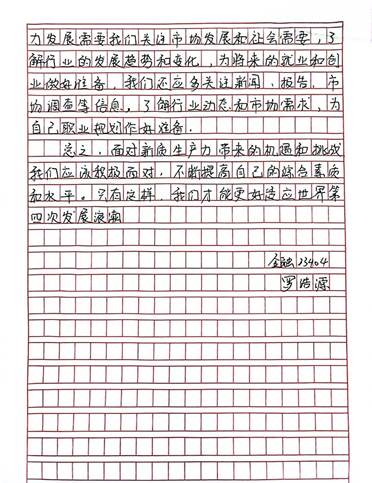 力发展需要我们关注市场发展和社会需要,了
解行业的发展趋势和变化,为将来的就业和创
业做好准备。我们还应多关注新闻、报告、市
场调查等信息。了解行业动态和市场需求,为
自己职业规划作好准备。
总之,面对新质生产力带来的机遇和挑战
我们应该积极面对,不断提高自己的综合素质
和水平。只有这样,我们才能更好适应世界第
四次发展浪潮
金融23404
罗浩源